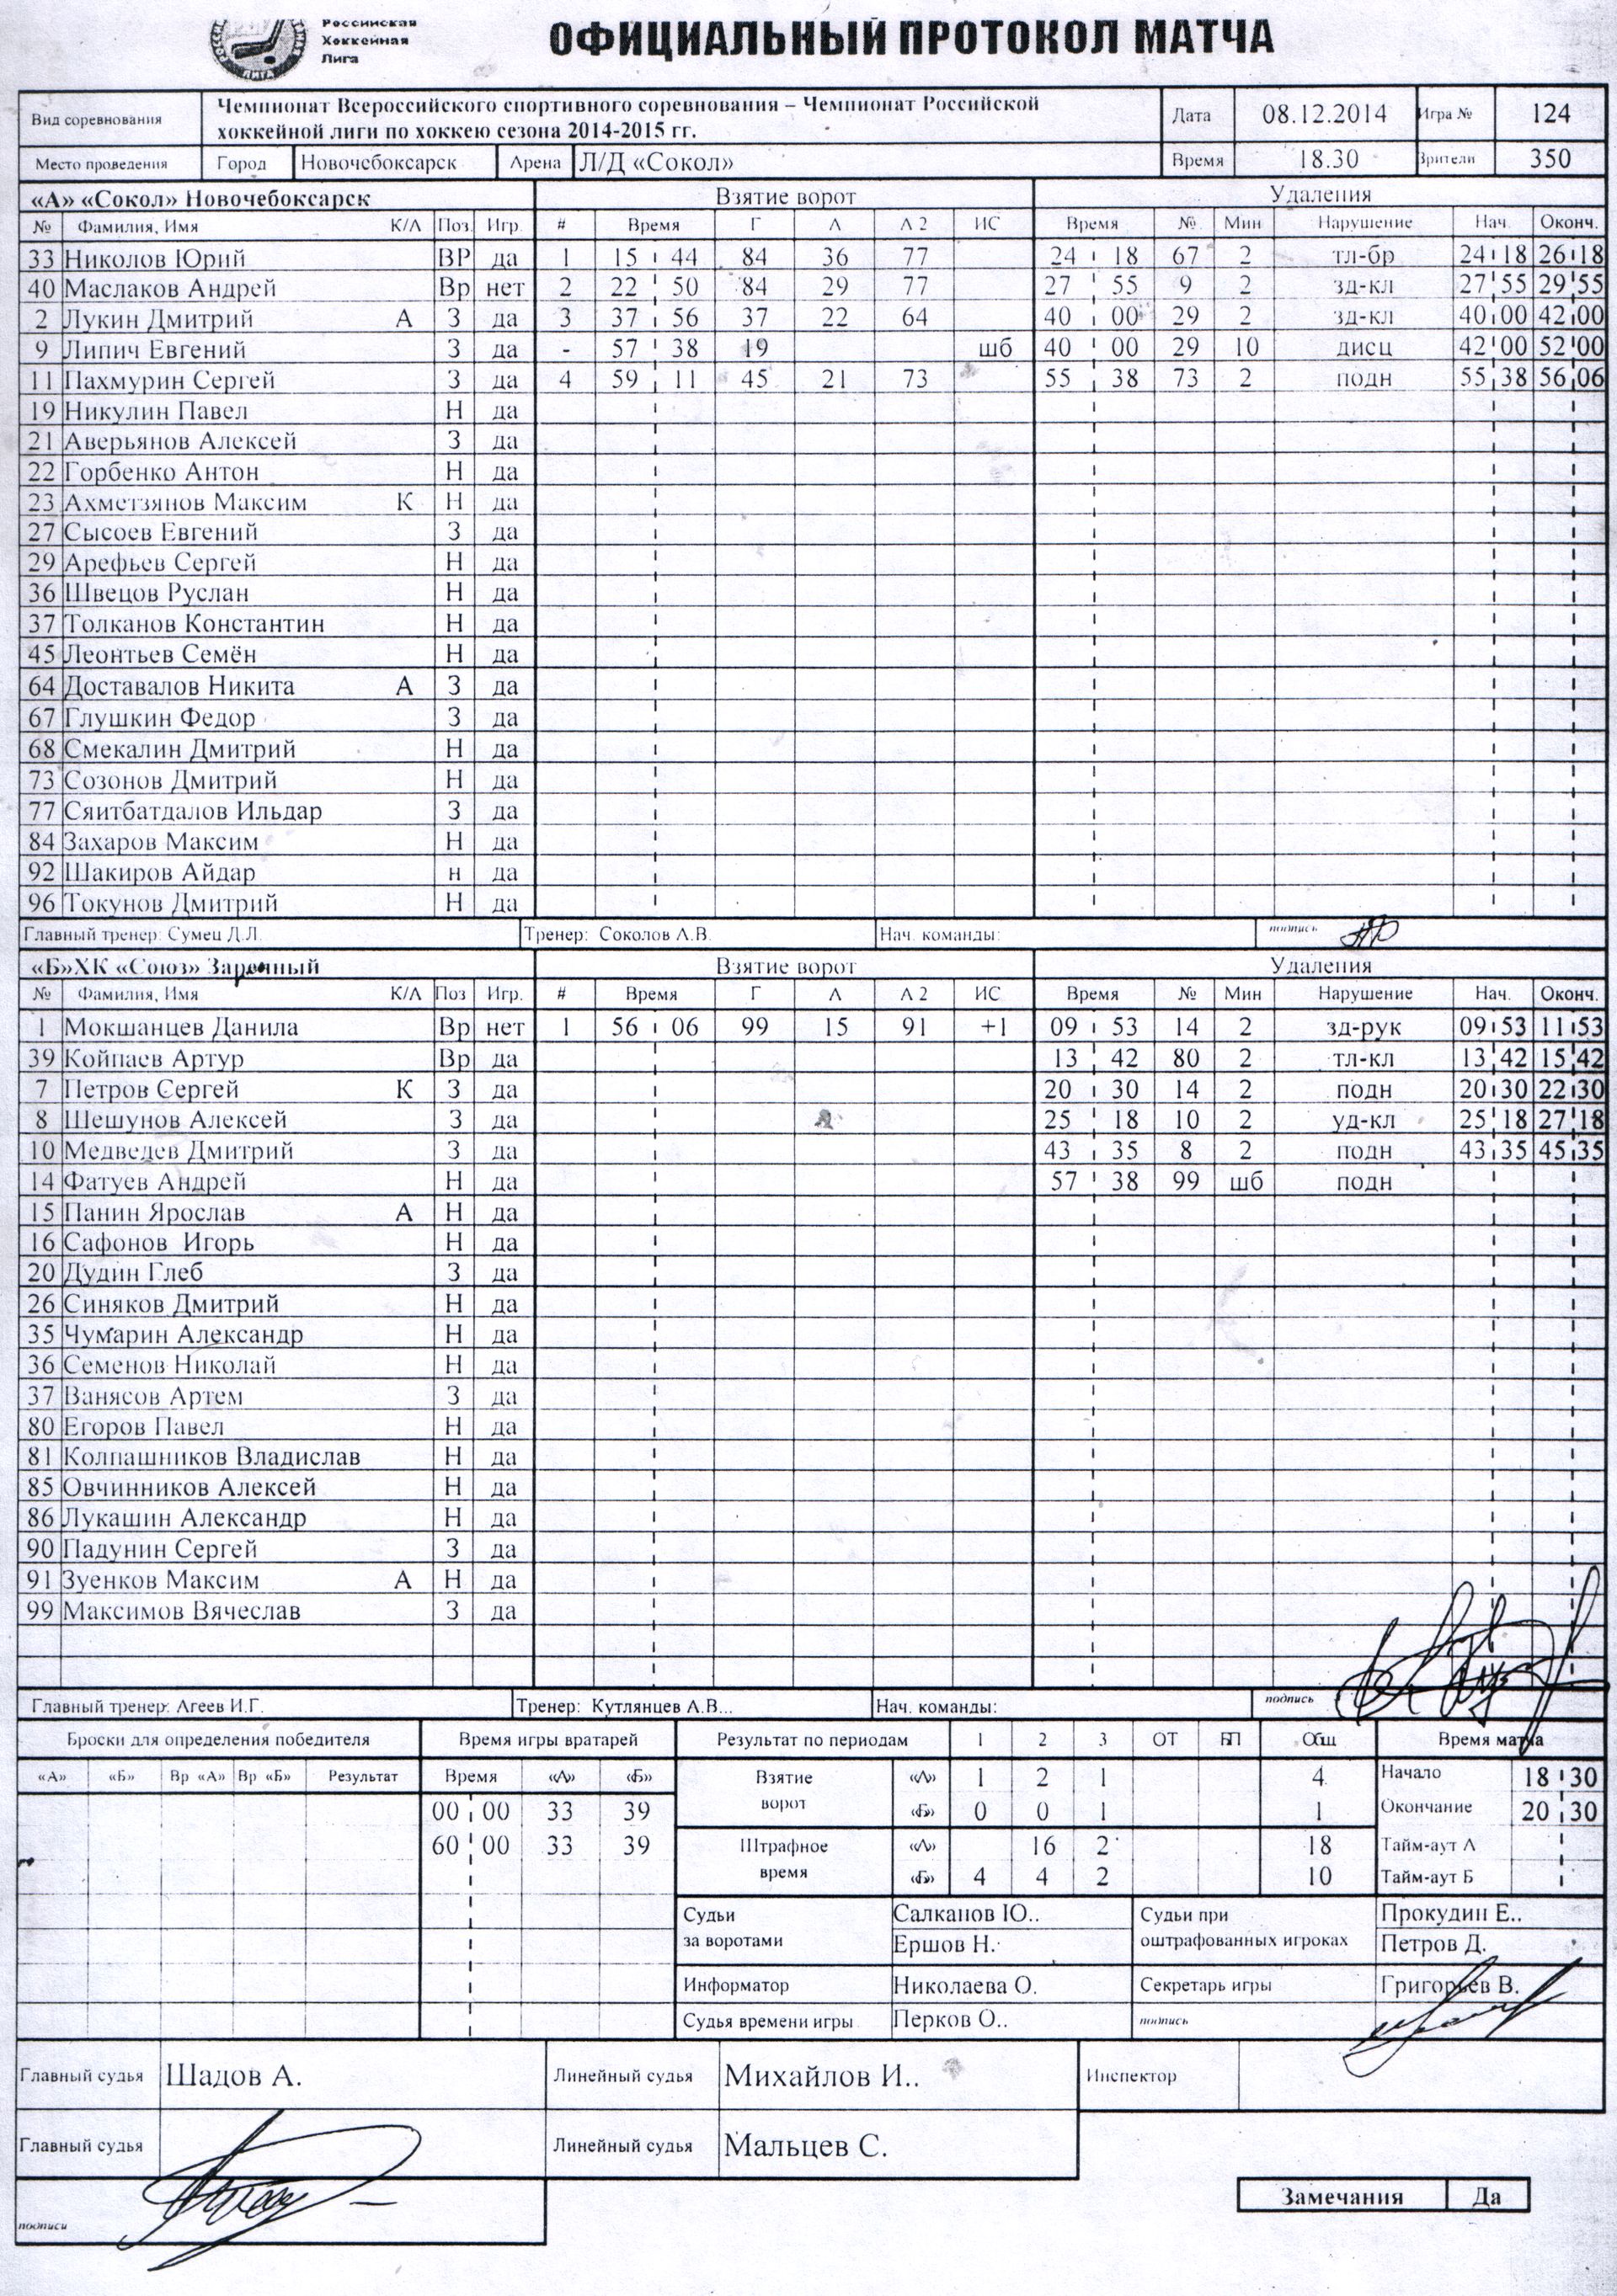 Российская
Хоккейная
Лига
ОФИЦИАЛЬНЫЙ ПРОТОКОЛ МАТЧА
Вид соревнования Чемпионат Всероссийского спортивного соревнования – Чемпионат Российской хоккейной лиги по хоккею сезона 2014-2015 гг. Дата 08.12.2014 Игра № 124
Место проведения Город Новочебоксарск Арена Л/Д «Сокол» Время 18.30 Зрители 350
«А» «Сокол» Новочебоксарск Взятие ворот Удаления
№ Фамилия, Имя К/А Поз Игр. # Время Г А А 2 ИС Время № Мин Нарушение Нач. Оконч.
33 Николов Юрий ВР да 1 15 44 84 36 77 24 18 67 2 тл-бр 24 18 26 18
40 Маслаков Андрей Вр нет 2 22 50 84 29 77 27 55 9 2 зд-кл 27 55 29 55
2 Лукин Дмитрий А З да 3 37 56 37 22 64 40 00 29 2 зд-кл 40 00 42 00
9 Липич Евгений З да - 57 38 19 шб 40 00 29 10 дисц 42 00 52 00
11 Пахмурин Сергей З да 4 59 11 45 21 73 55 38 73 2 подн 55 38 56 06
19 Никулин Павел Н да
21 Аверьянов Алексей З да
22 Горбенко Антон Н да
23 Ахметзянов Максим К Н да
27 Сысоев Евгений З да
29 Арефьев Сергей Н да
36 Швецов Руслан Н да
37 Толканов Константин Н да
45 Леонтьев Семён Н да
64 Доставалов Никита А З да
67 Глушкин Федор З да
68 Смекалин Дмитрий Н да
73 Созонов Дмитрий Н да
77 Сяитбатдалов Ильдар З да
84 Захаров Максим Н да
92 Шакиров Айдар н да
96 Токунов Дмитрий Н да
Главный тренер: Сумец Д.Л. Тренер: Соколов А.В. Нач. команды: подпись
«Б»ХК «Союз» Заречный Взятие ворот Удаления
№ Фамилия, Имя К/А Поз Игр. # Время Г А А 2 ИС Время № Мин Нарушение Нач. Оконч.
1 Мокшанцев Данила Вр нет 1 56 06 99 15 91 +1 09 53 14 2 зд-рук 09 53 11 53
39 Койпаев Артур Вр да 13 42 80 2 тл-кл 13 42 15 42
7 Петров Сергей К З да 20 30 14 2 подн 20 30 22 30
8 Шешунов Алексей З да 25 18 10 2 уд-кл 25 18 27 18
10 Медведев Дмитрий З да 43 35 8 2 подн 43 35 45 35
14 Фатуев Андрей Н да 57 38 99 шб подн
15 Панин Ярослав А Н да
16 Сафонов Игорь Н да
20 Дудин Глеб З да
26 Синяков Дмитрий Н да
35 Чумарин Александр Н да
36 Семенов Николай Н да
37 Ванясов Артем З да
80 Егоров Павел Н да
81 Колпашников Владислав Н да
85 Овчинников Алексей Н да
86 Лукашин Александр Н да
90 Падунин Сергей З да
91 Зуенков Максим А Н да
99 Максимов Вячеслав З да
Главный тренер: Агеев И.Г. Тренер: Кутлянцев А.В... Нач. команды: подпись
Броски для определения победителя Время игры вратарей Результат по периодам 1 2 3 ОТ БП Общ Время матча
«А» «Б» Вр «А» Вр «Б» Результат Время «А» «Б» Взятие ворот «А» 1 2 1 4 Начало 18 30
00 00 33 39 «Б» 0 0 1 1 Окончание 20 30
60 00 33 39 Штрафное время «А» 16 2 18 Тайм-аут А
«Б» 4 4 2 10 Тайм-аут Б
Судьи за воротами Салканов Ю.. Судьи при оштрафованных игроках Прокудин Е..
Ершов Н. Петров Д.
Информатор Николаева О. Секретарь игры Григорьев В.
Судья времени игры Перков О.. подпись
Главный судья Шадов А. Линейный судья Михайлов И.. Инспектор
Главный судья Линейный судья Мальцев С.
подписи
Замечания Да